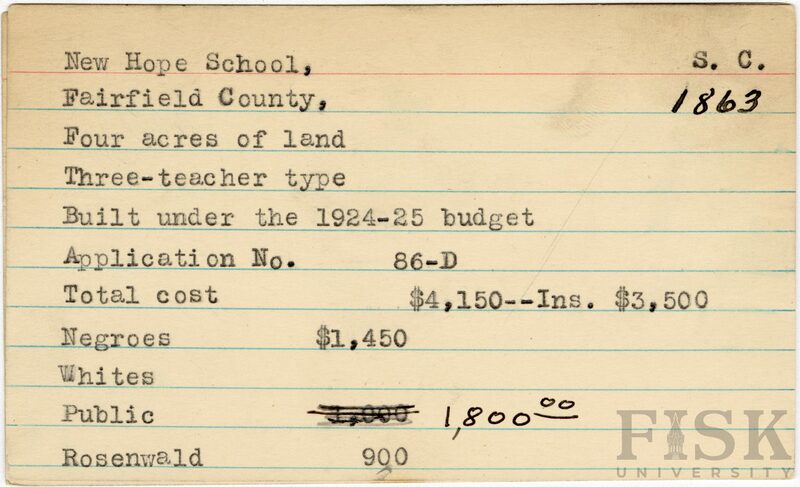 New Hope School, S. C.
Fairfield County, 1863
Four acres of land
Three-teacher type
Built under the 1924-25 budget
Application No. 86-D
Total cost $4,150--Ins. $3,500
Negroes $1,450
Whites
Public 1,000 1,800.00
Rosenwald 900
FISK
UNIVERSITY